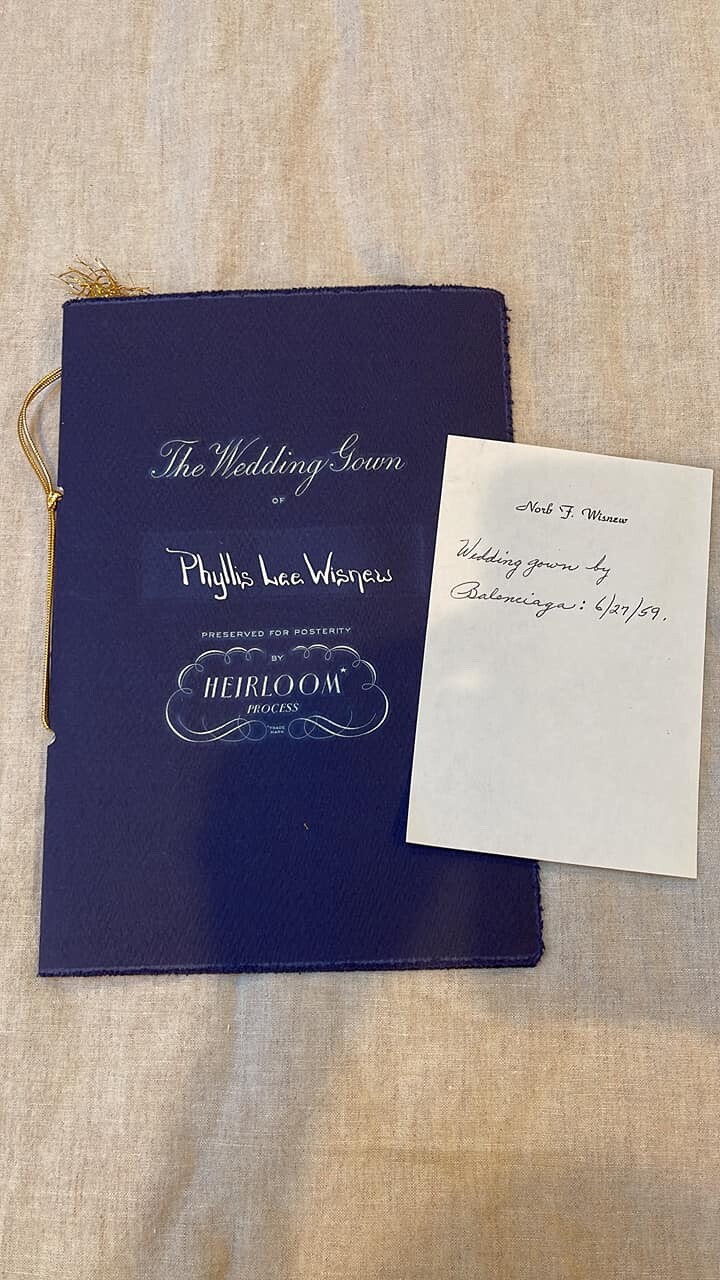 The Wedding Gown
OF
Phyllis Lee Wisnew
PRESERVED FOR POSTERITY
BY
HEIRLOOM*
PROCESS
*TRADE
MARK
Norb F. Wisnew
Wedding gown by
Balenciaga: 6/27/59.